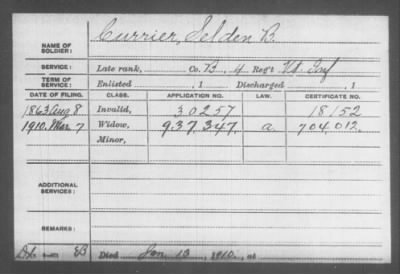 NAME OF SOLDIER: Currier, Selden B.
SERVICE: Late rank, Co. B, 4 Reg't Vt. Inf
TERM OF SERVICE: Enlisted , 1 Discharged , 1
DATE OF FILING. CLASS. APPLICATION NO. LAW. CERTIFICATE NO.
1863 Aug 8 Invalid, 30257 18152
1910. Mar. 7 Widow, 937.347. a. 704.012.
Minor,
ADDITIONAL SERVICES:
REMARKS:
Died Jan. 13, 1910, at